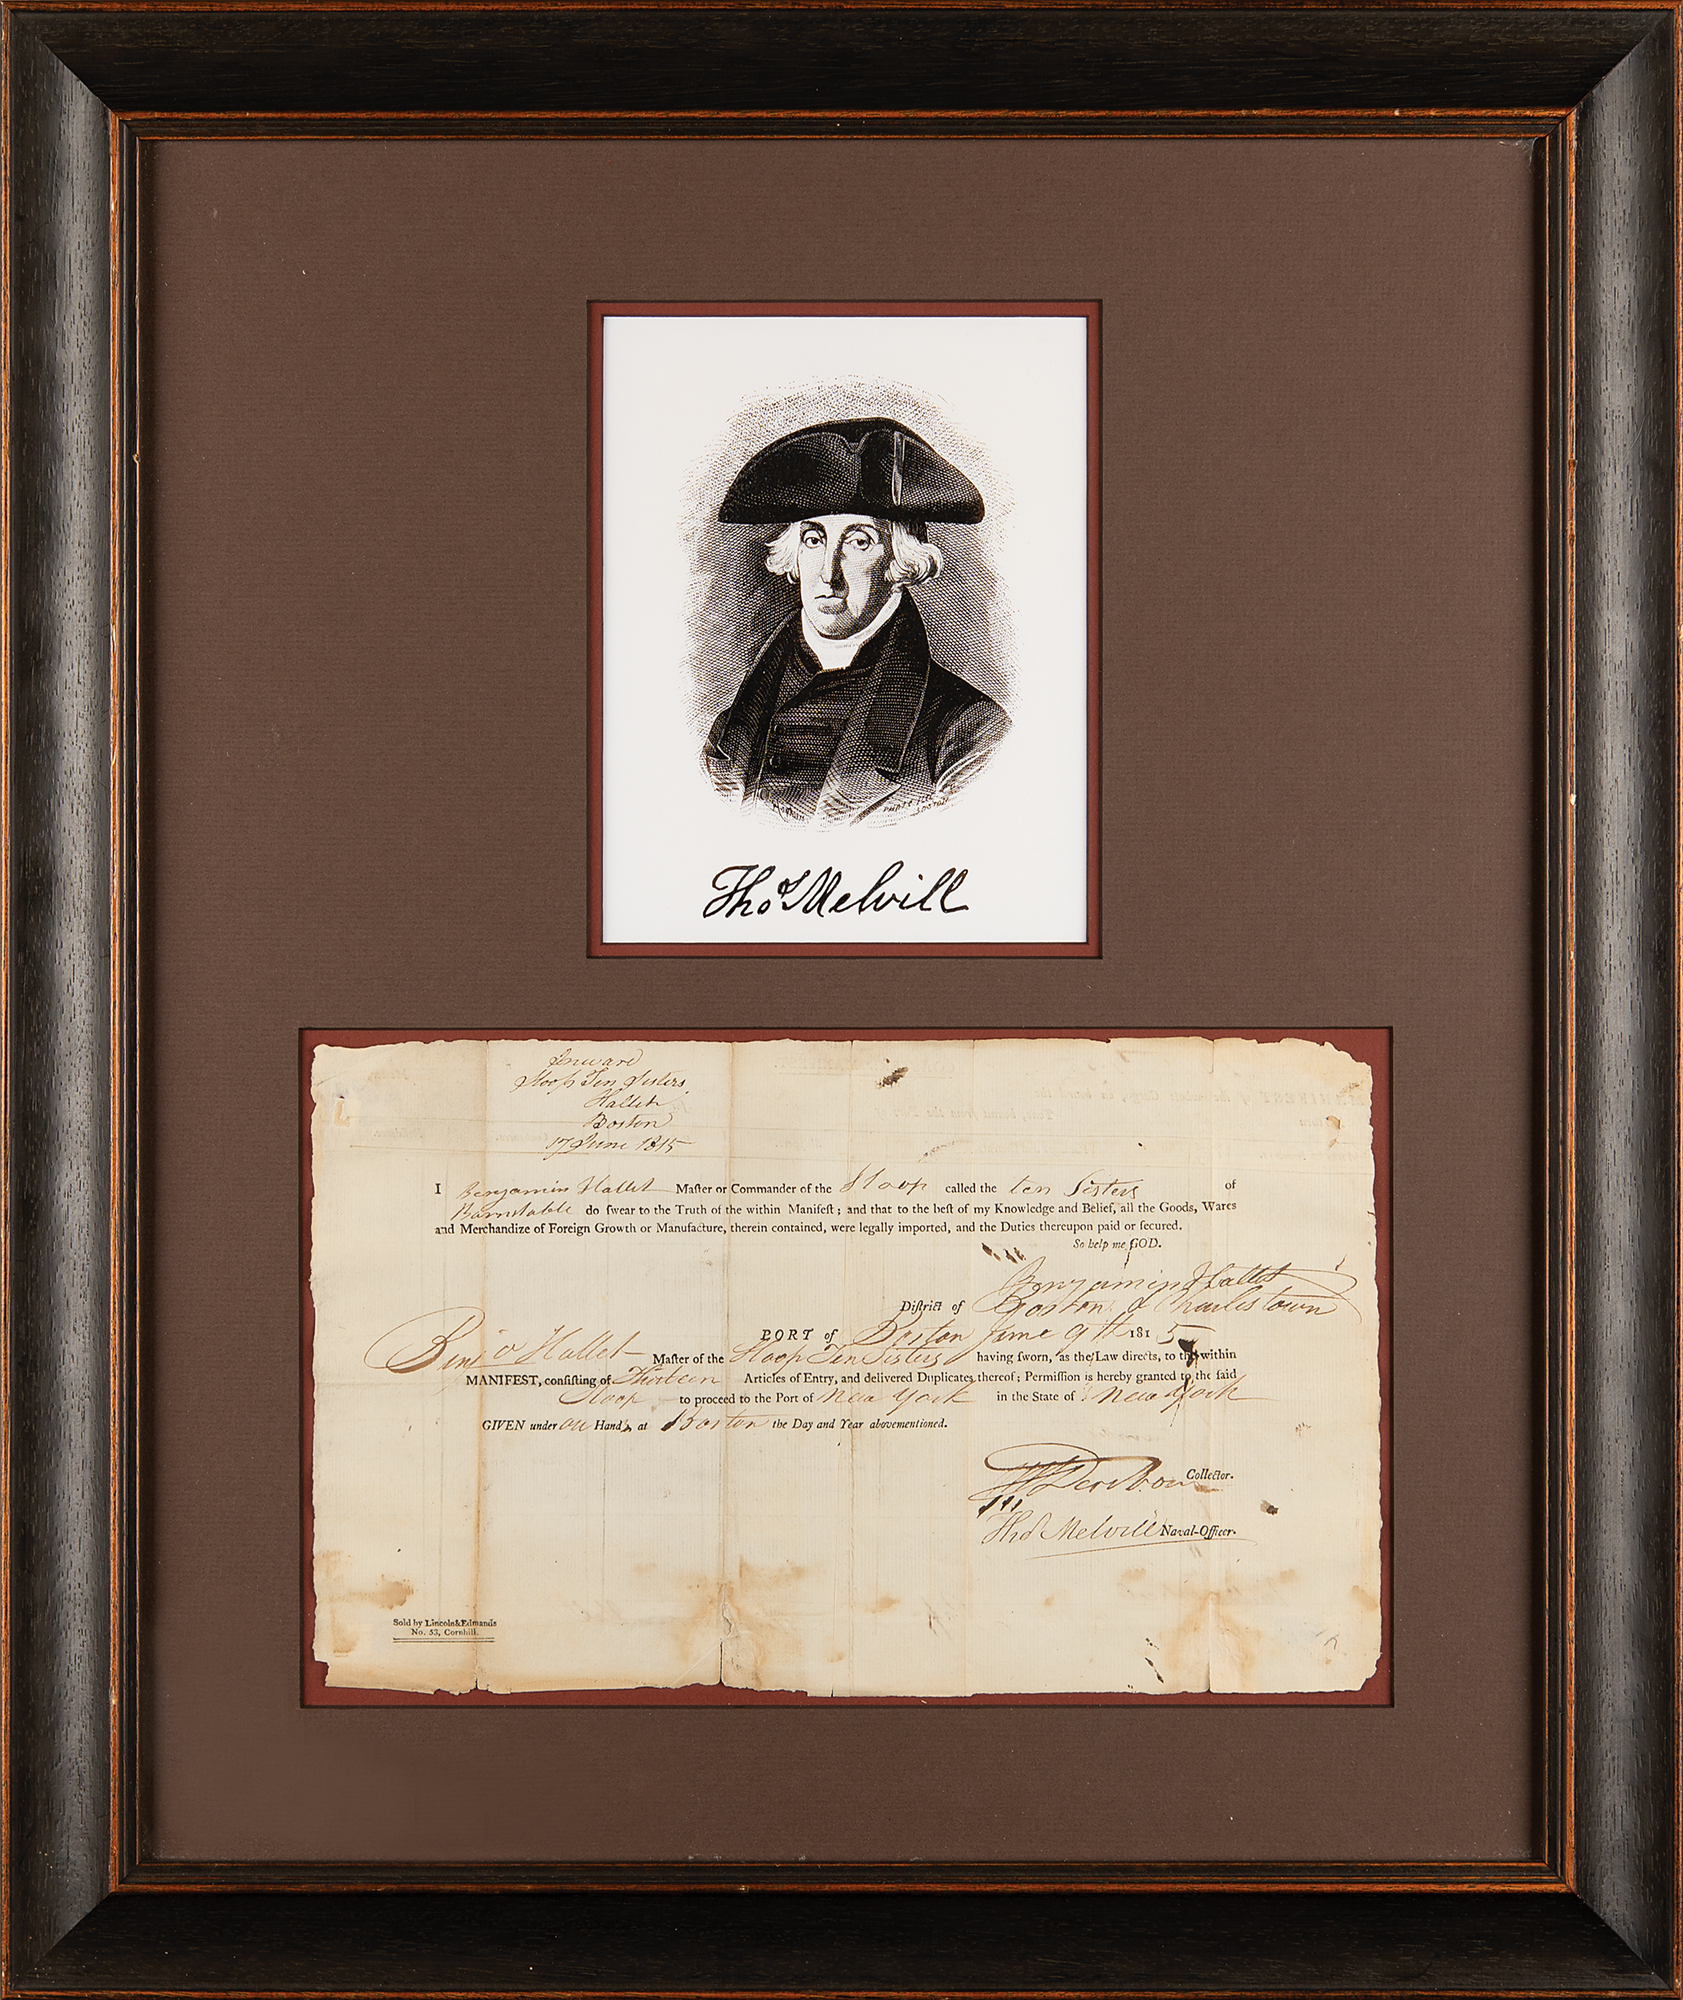 Thos Melvill
Inward
Sloop Ten Sisters
Hallet
Boston
17 June 1815
I Benjamin Hallet Maſter or Commander of the Sloop called the ten Sisters of
Barnstable do ſwear to the Truth of the within Manifeſt; and that to the beſt of my Knowledge and Belief, all the Goods, Wares
and Merchandize of Foreign Growth or Manufacture, therein contained, were legally imported, and the Duties thereupon paid or ſecured.
So help me GOD.
Benjamin Hallet
Diſtrict of Boston & Charlestown
PORT of Boston June 9th 1815
Benja Hallet Maſter of the Sloop Ten Sisters having ſworn, as the Law directs, to the within
MANIFEST, conſiſting of Thirteen Articles of Entry, and delivered Duplicates thereof; Permiſſion is hereby granted to the ſaid
Sloop to proceed to the Port of New York in the State of New York
GIVEN under our Hands at Boston the Day and Year abovementioned.
H Dearborn Collector.
Thos Melvill Naval-Officer.
Sold by Lincoln & Edmands
No. 53, Cornhill.